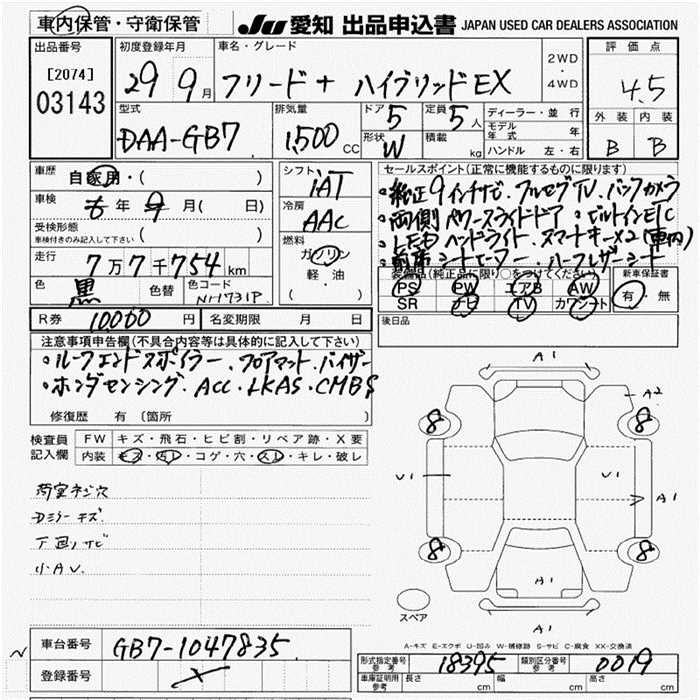 車内保管・守衛保管 JU 愛知 出品申込書 JAPAN USED CAR DEALERS ASSOCIATION
出品番号 初度登録年月 車名・グレード 2WD・4WD 評価点
[2074] 03143 29 9月 フリード＋ ハイブリッドEX 4.5
型式 排気量 ドア 5 定員 5人 ディーラー・並行 外装 内装
DAA-GB7 1,500 CC 形状 W 積載 kg モデル年式 年 B B
ハンドル 左・右
車歴 自家用・( ) シフト セールスポイント(正常に機能するものに限ります)
車検 年 月( 日) iAT ・純正9インチナビ．フルセグTV．バックカメラ
受検形態 ( ) 冷房 ・両側パワースライドドア・ビルトインETC
車検付きのみ記入して下さい AAC ・LEDヘッドライト．スマートキー×2(車内)
走行 7万7千754km 燃料 ガソリン ・前席シートヒーター・ハーフレザーシート
軽油
・( )
色 黒 色替 色コード NH731P 装備品(純正品に限り○をつけてください) 新車保証書
PS PW エアB AW 有・無
SR ナビ TV カワシート
R券 10,000円 名変期限 月 日 後日品
注意事項申告欄(不具合内容等は具体的に記入して下さい)
・ルーフエンドスポイラー．フロアマット．バイザー
・ホンダセンシング．ACC．LKAS．CMBS
修復歴 有 (箇所 )
検査員記入欄 FW キズ・飛石・ヒビ割・リペア跡・X要
内装 キズ・汚レ・コゲ・穴・スレ・キレ・破レ
荷室ネジ穴
Dミラーキズ
下回りサビ
小AV.
A1
A2
8 8
U1 U1 A1
8 8
A1
スペア
A1
A-キズ E-エクボ U-凹み W-補修跡 S-サビ C-腐食 XX-交換済
車台番号 GB7-1047835
登録番号
形式指定番号 参考 18395 類別区分番号 参考 0019
車庫証明用 参考 長さ cm 幅 cm 高さ cm